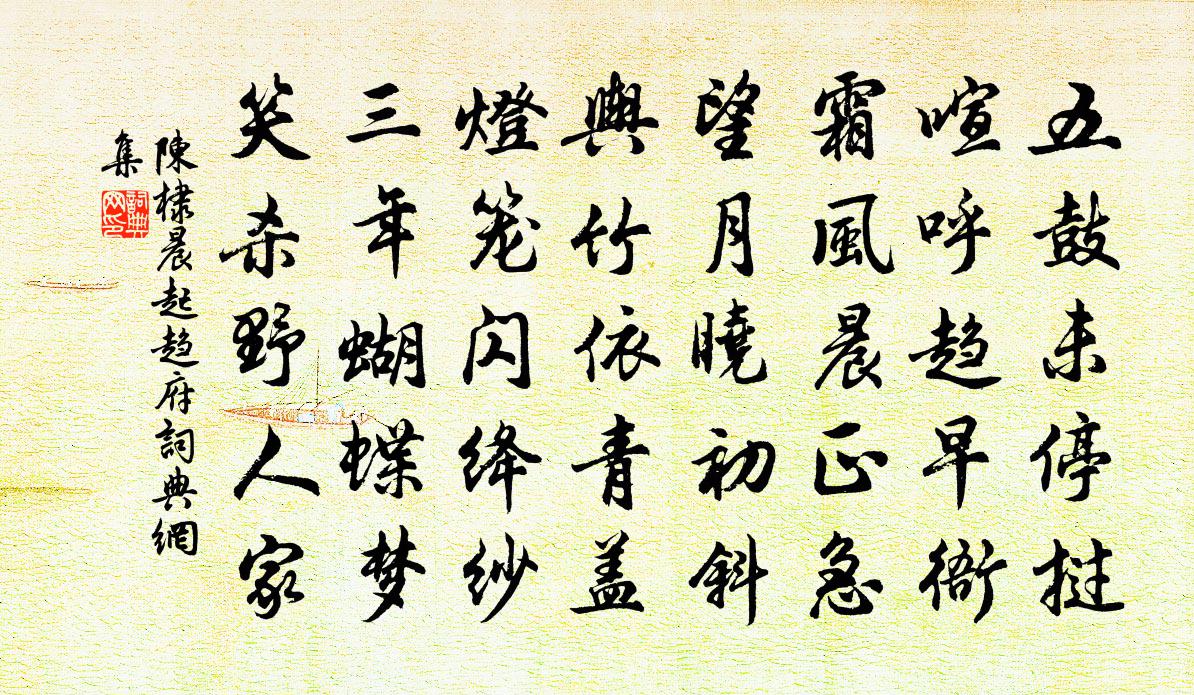 五鼓未停挝
喧呼趋早衙
霜風晨正急
望月曉初斜
輿竹依青盖
燈笼闪绛纱
三年蝴蝶梦
笑杀野人家
陳棣晨起趋府詞典網
集
詞典網印